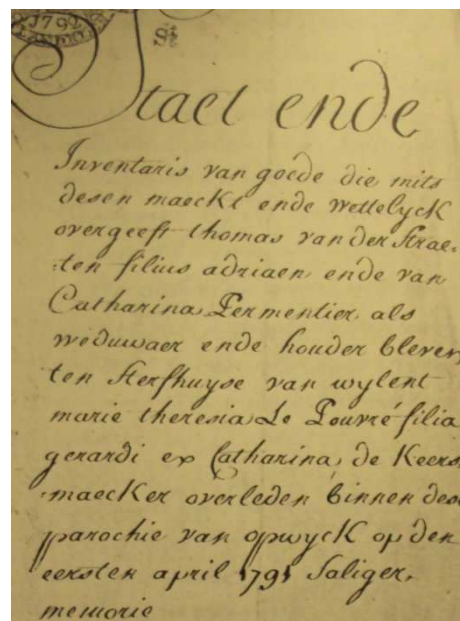 1792
Staet ende
Inventaris van goede die mits
desen maeckt ende wettelyck
overgeeft thomas van der strae-
:ten filius adriaen ende van
Catharina Permentier als
weduwaer ende houder bleven
ten sterfhuyse van wylent
marie theresia Le Pouvré filia
gerardi ex Catharina de Keers
:maecker overleden binnen dese
parochie van opwyck op den
eersten april 1791 Saliger.
memorie